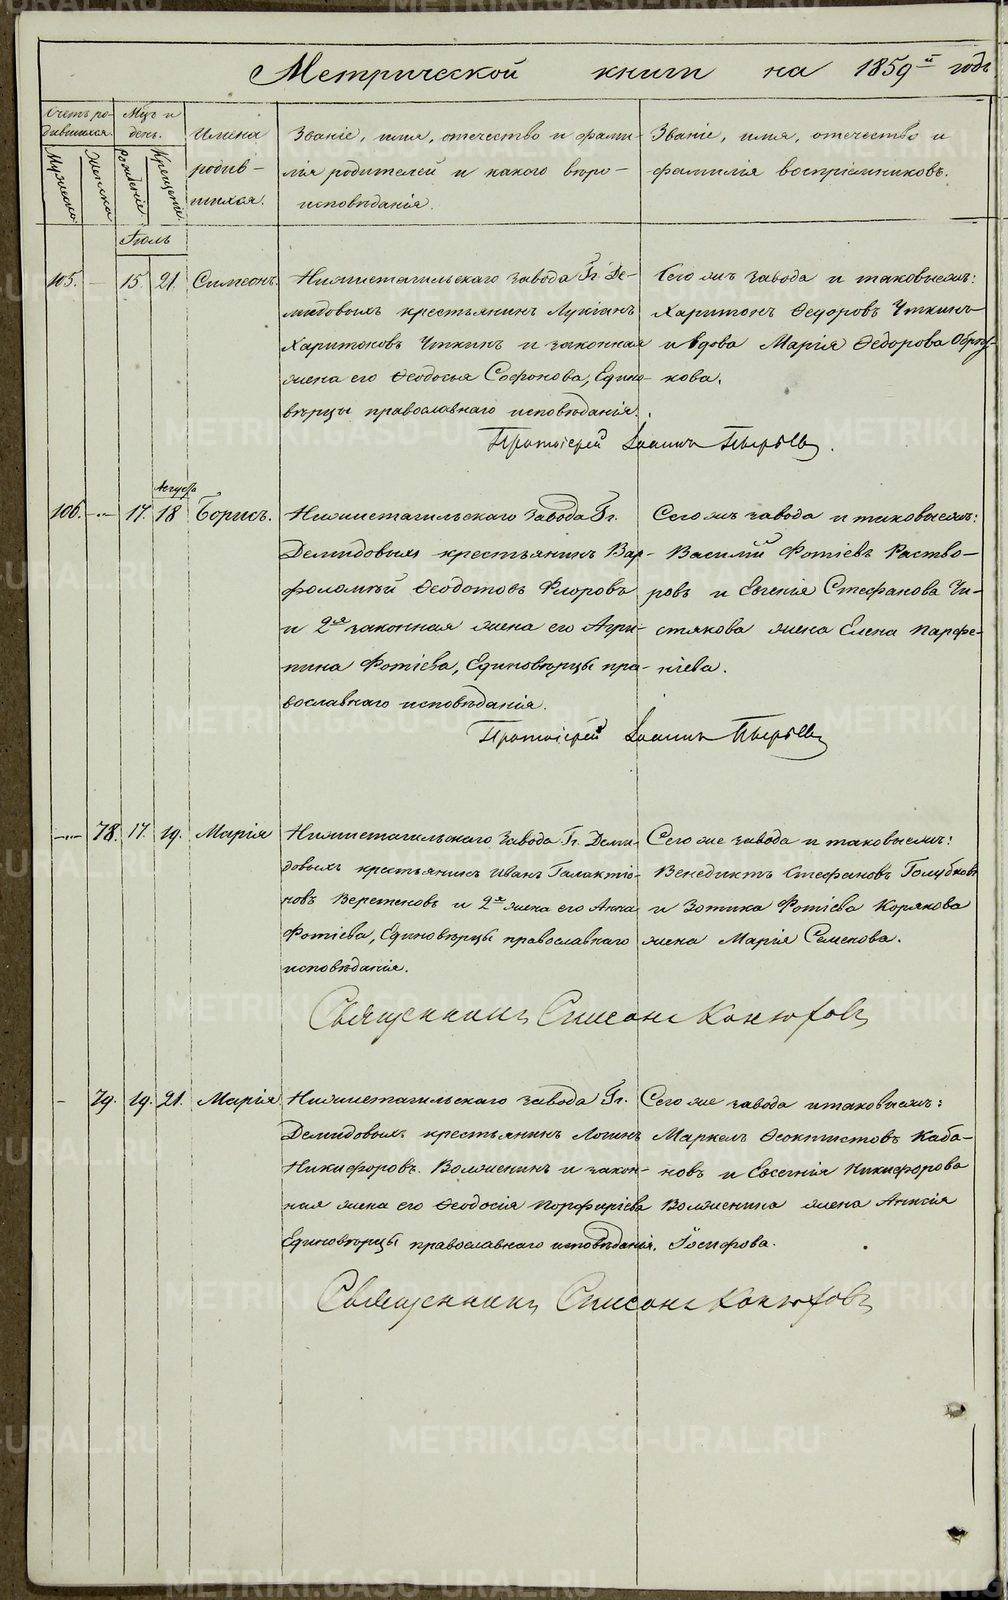 Метрической книги на 1859й годъ
Счетъ ро-
дившихся.
Мужеска
Женска
Мцъ и
день.
рожденіе
Крещеніе
Имена
родив-
шихся.
Званіе, имя, отечество и фами-
лія родителей и какого вѣро-
исповѣданія.
Званіе, имя, отечество и
фамилія воспріемниковъ.
Іюль
105. — 15. 21. Симеонъ.
Нижнетагильскаго завода Гг. Де-
мидовыхъ крестьянинъ Лукіанъ
Харитоновъ Уткинъ и законная
жена его Ѳеодосья Софонова, Едино-
вѣрцы православнаго исповѣданія.
Сего жъ завода и таковыежъ:
Харитонъ Ѳедоровъ Уткинъ
и вдова Марія Ѳедорова
кова.
Протоіерей Іоаннъ Пырьевъ.
Августа
106. — 17. 18 Борисъ.
Нижнетагильскаго завода Гг.
Демидовыхъ крестьянинъ Вар-
фоломѣй Ѳеодотовъ Флоровъ
и 2ая законная жена его Агри-
пина Фотіева, Единовѣрцы пра-
вославнаго исповѣданія.
Сего жъ завода и таковыежъ:
Василій Фотіевъ Раство-
ровъ и Евгенія Стефанова Чи-
стякова жена Елена Парфе-
ніева.
Протоіерей Іоаннъ Пырьевъ
— 78. 17. 19. Марія
Нижнетагильскаго завода Гг. Деми-
довыхъ крестьянинъ Иванъ Галактіо-
новъ Веретеновъ и 2я жена его Анна
Фотіева, Единовѣрцы православнаго
исповѣданія.
Сего же завода и таковыежъ:
Венедиктъ Стефановъ Голубковъ
и Зотика Фотіева Корякова
жена Марія Семенова.
Священникъ Симеонъ Конюховъ
— 79. 19. 21. Марія
Нижнетагильскаго завода Гг.
Демидовыхъ крестьянинъ Логинъ
Никифоровъ Волженинъ и закон-
ная жена его Ѳеодосія Порфиріева
Единовѣрцы православнаго исповѣданія.
Сего же завода и таковыежъ:
Маркелъ Ѳеоктистовъ Каба-
новъ и Евсегнія Никифорова
Волженина жена Анисія
Іосифова.
Священникъ Симеонъ Конюховъ
METRIKI.GASO-URAL.RU